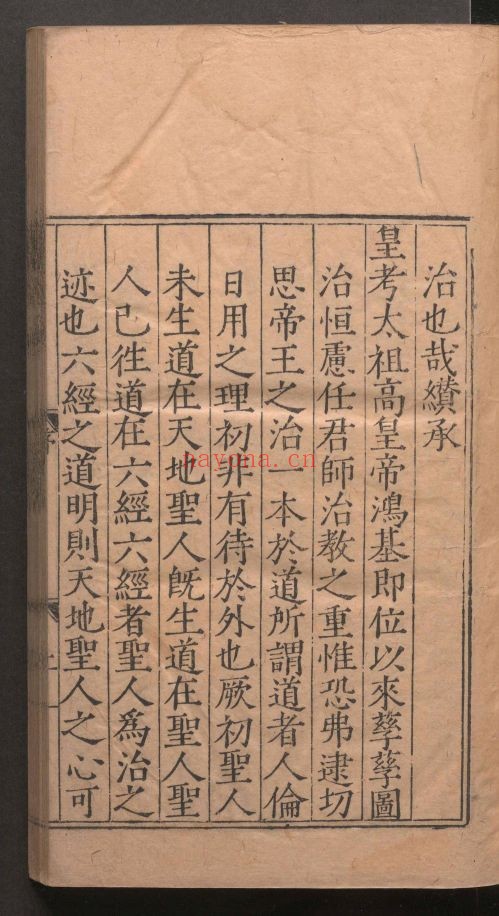 治也哉纘承
皇考太祖高皇帝鴻基即位以來孳孳圖
治恒慮任君師治教之重惟恐弗逮切
思帝王之治一本於道所謂道者人倫
日用之理初非有待於外也厥初聖人
未生道在天地聖人既生道在聖人聖
人已往道在六經六經者聖人爲治之
迹也六經之道明則天地聖人之心可
nayona.cn